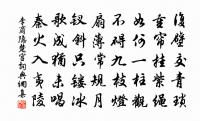 復壁交青瑣
重帘挂紫繩
如何一柱觀
不碍九枝燈
扇薄常規月
釵斜只鏤冰
歌成猶未唱
秦火入夷陵
李商隱楚宮詞典網集